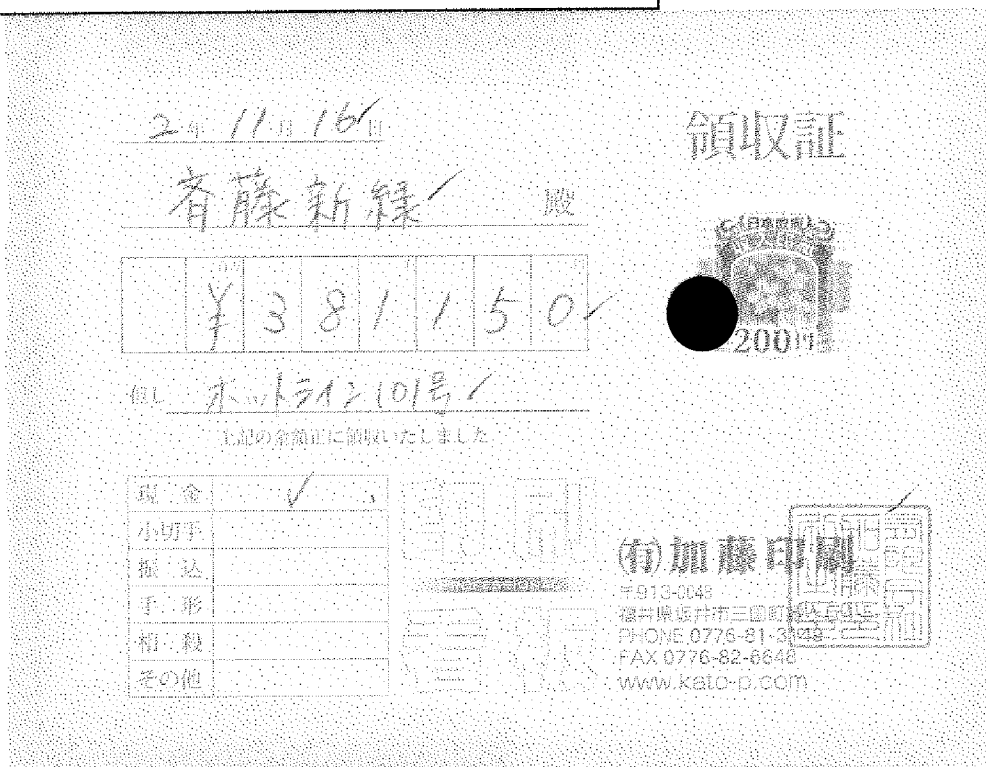 領収証
2年11月16日
斉藤新緑 殿
¥381150
200円
但し ホットライン101号
上記の金額正に領収いたしました
現金
小切手
振込
手形
相殺
その他
㈲加藤印刷
〒913-0048
福井県坂井市三国町
PHONE 0776-81-3
FAX 0776-82-6646
www.kato-p.com